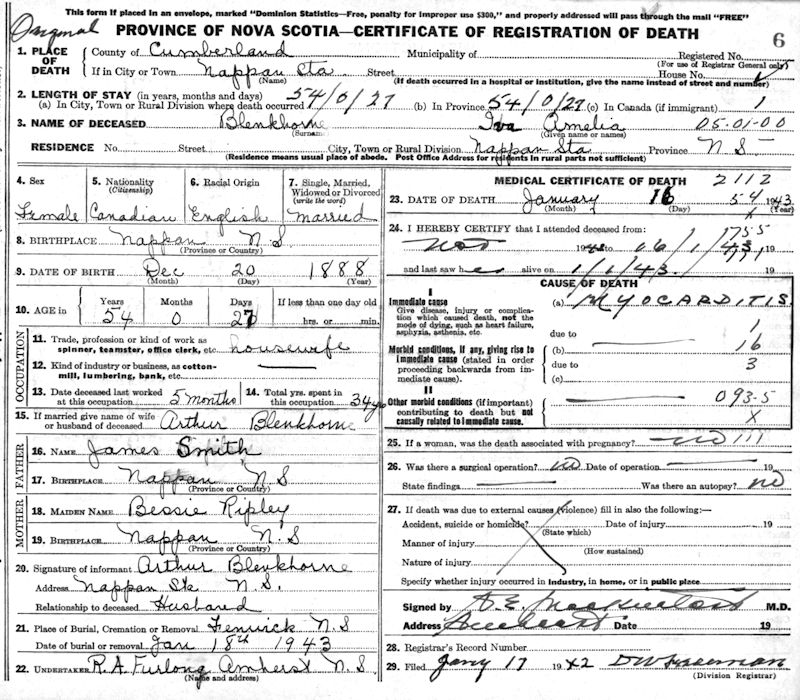 This form if placed in an envelope, marked "Dominion Statistics—Free, penalty for improper use $300," and properly addressed will pass through the mail "FREE"
Original
PROVINCE OF NOVA SCOTIA—CERTIFICATE OF REGISTRATION OF DEATH
6
1. PLACE OF DEATH County of Cumberland Municipality of Registered No.
(For use of Registrar General only)
If in City or Town Nappan Sta Street House No.
(Name) (If death occurred in a hospital or institution, give the name instead of street and number)
2. LENGTH OF STAY (in years, months and days)
(a) In City, Town or Rural Division where death occurred 54/0/27 (b) In Province 54/0/27 (c) In Canada (if immigrant) 1
3. NAME OF DECEASED Blenkhorne Iva Amelia 05-01-00
(Surname) (Given name or names)
RESIDENCE No. Street City, Town or Rural Division Nappan Sta Province N S
(Residence means usual place of abode. Post Office Address for residents in rural parts not sufficient)
4. Sex 5. Nationality (Citizenship) 6. Racial Origin 7. Single, Married, Widowed or Divorced (write the word)
Female Canadian English Married
8. BIRTHPLACE Nappan N S
(Province or Country)
9. DATE OF BIRTH Dec 20 1888
(Month) (Day) (Year)
10. AGE in Years Months Days If less than one day old
54 0 27 hrs. or min.
OCCUPATION
11. Trade, profession or kind of work as spinner, teamster, office clerk, etc. housewife
12. Kind of industry or business, as cotton-mill, lumbering, bank, etc.
13. Date deceased last worked at this occupation 5 months 14. Total yrs. spent in this occupation 34 yrs
15. If married give name of wife or husband of deceased Arthur Blenkhorne
FATHER
16. NAME James Smith
17. BIRTHPLACE Nappan N S
(Province or Country)
MOTHER
18. MAIDEN NAME Bessie Ripley
19. BIRTHPLACE Nappan N.S.
(Province or Country)
20. Signature of informant Arthur Blenkhorne
Address Nappan Sta N.S.
Relationship to deceased Husband
21. Place of Burial, Cremation or Removal Fenwick N.S
Date of burial or removal Jan 18th 1943
22. UNDERTAKER R. A. Furlong Amherst N.S.
(Name and address)
MEDICAL CERTIFICATE OF DEATH 2112
23. DATE OF DEATH January 16 1943
54
(Month) (Day) (Year)
x
24. I HEREBY CERTIFY that I attended deceased from:
19 16/1/43 19
and last saw her alive on 1/1/43. 19
CAUSE OF DEATH
I
Immediate cause
Give disease, injury or complication which caused death, not the mode of dying, such as heart failure, asphyxia, asthenia, etc.
(a) MYOCARDITIS
due to 1
Morbid conditions, if any, giving rise to immediate cause (stated in order proceeding backwards from immediate cause).
(b) 16
due to 3
(c)
II
Other morbid conditions (if important) contributing to death but not causally related to immediate cause.
093-5
X
25. If a woman, was the death associated with pregnancy? no 111
26. Was there a surgical operation? no Date of operation 19
State findings Was there an autopsy? no
27. If death was due to external causes (violence) fill in also the following:—
Accident, suicide or homicide? Date of injury 19
(State which)
Manner of injury
(How sustained)
Nature of injury
Specify whether injury occurred in industry, in home, or in public place
Signed by M.D.
Address Amherst Date 19
28. Registrar's Record Number
29. Filed Jany 17 1942
(Division Registrar)